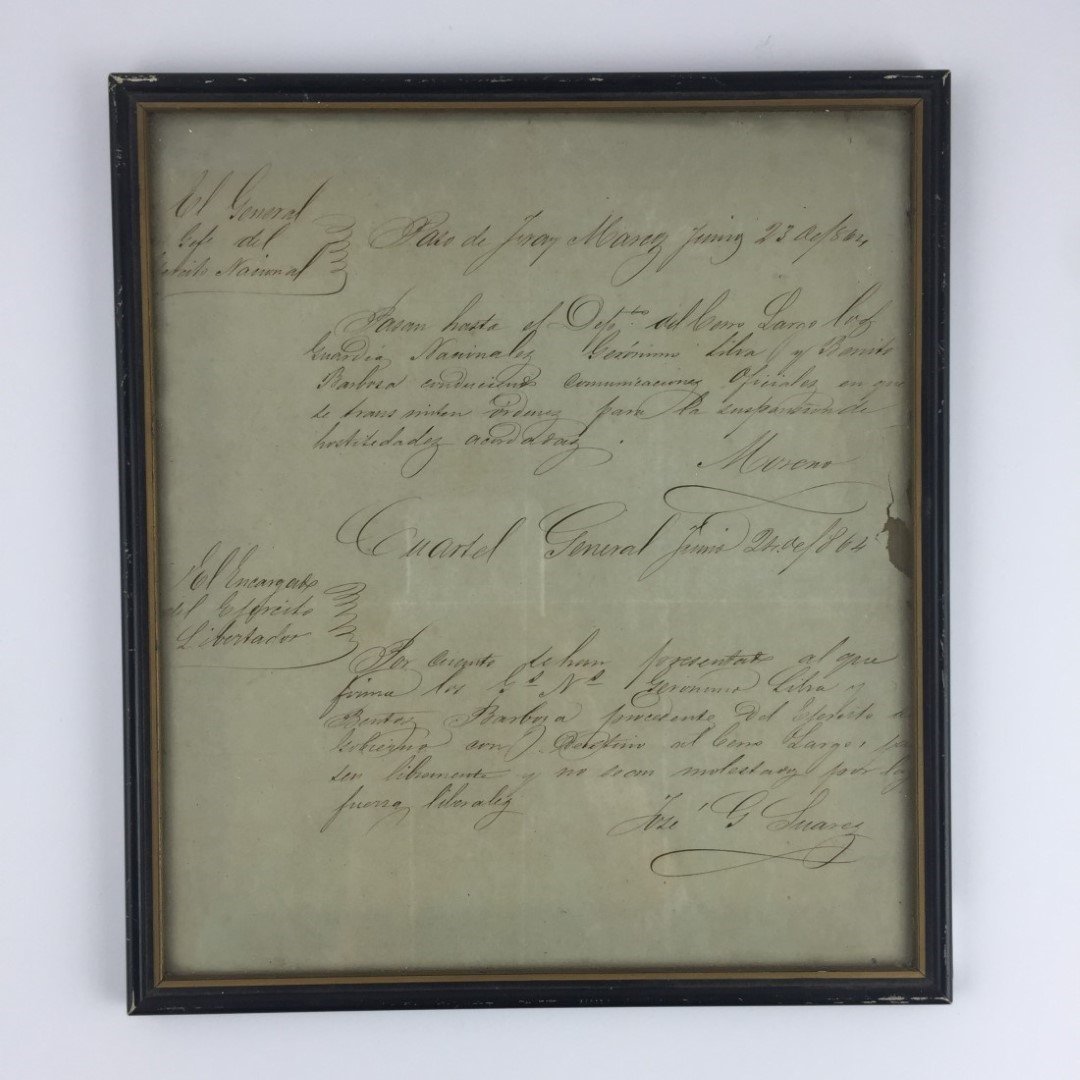 El General
Gefe del
Ejército Nacional
Paso de Fray Marcoz Junio 23 de /864
Pasan hasta el Depto. del Cerro Largo loz
Guardiaz Nacionalez Gerónimo Silva y Benito
Barbosa conduciendo comunicacionez Oficialez en que
se transmiten ordenez para la suspension de
hostilidadez acordadaz.
Moreno
Cuartel General Junio 24 de /864
El Encargado
del Ejército
Libertador
Por cuanto se han presentado al que
firma los Gs. Ns. Gerónimo Silva y
Benito Barbosa procedente del Ejército
Gobierno con destino al Cerro Largo,
sen libremente y no sean molestadoz por laz
fuerzaz liberalez
José G Suarez